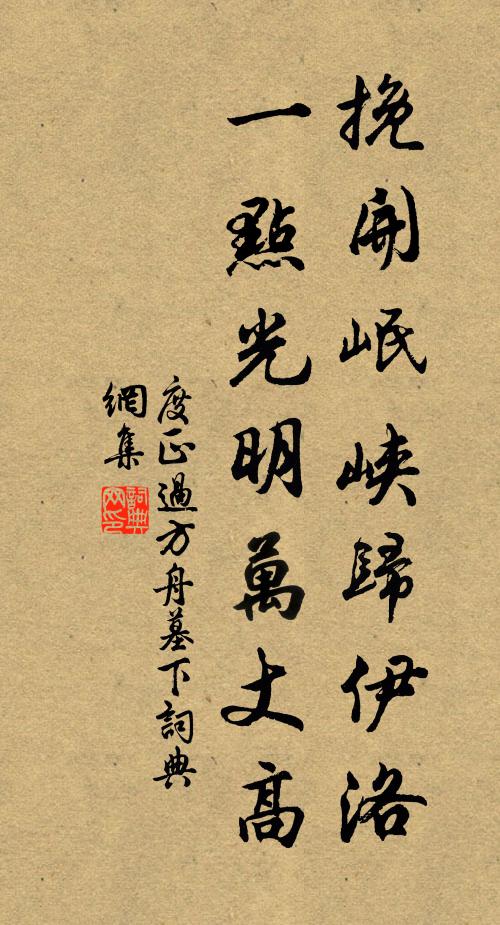 挽開岷峽歸伊洛
一點光明萬丈高
度正過方舟墓下詞典
網集
詞典
网印